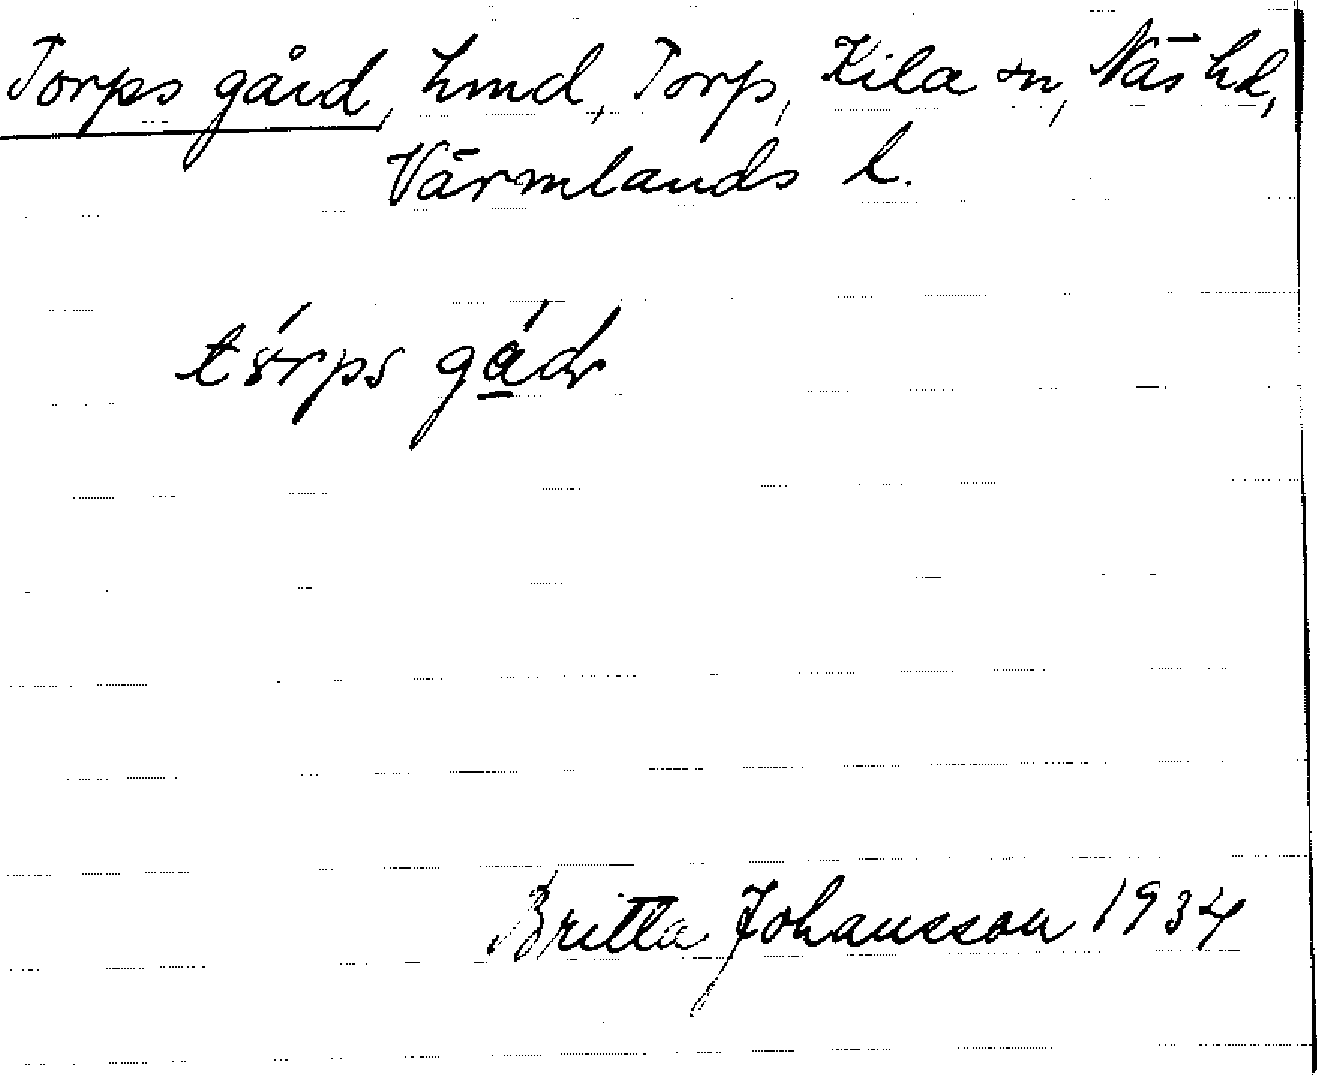 Torps gård, hmd, Torp, Kila sn, Näs hd,
Värmlands l.
Britta Johansson 1934